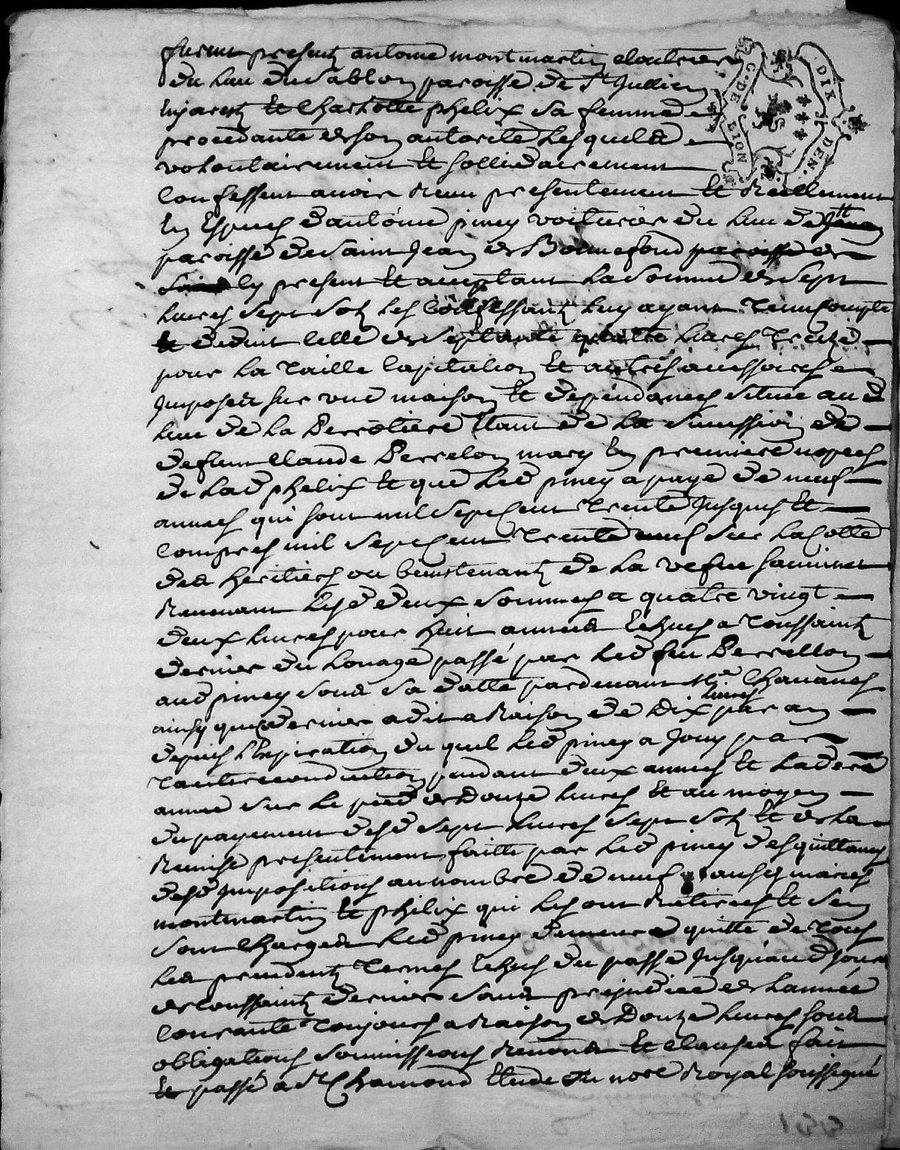 furent presentz antoine montmartin cloutrier
du lieu du Sablon paroisse de St Jullien
En jarest et Charlotte phelix sa femme de
procedante de son autorité lesquels
volontairement et sollidairement
confessent avoir Receu presentement et Reellement
En Especes d'antoine piney voiturier du lieu de
paroisse de Saint Jean de Bonnefond paroisse de
icy present et acceptant la somme de sept
livres sept solz les Confessantz luy ayant Tenu compte
et deduit Celle de septante quatre livres Treize
pour la Taille Capitation et autres accessoires
Imposés sur une maison et dependances située aud
lieu de la Perrotiere Etant de la succession de
deffunt Claude Perrelon mary En premiere nopces
de lad phelix et que led piney a payé de neuf
années qui sont mil sept Cent Trente Jusques et
Compres mil sept Cent Trente neuf sur la Cotte
des heritiers ou bienstenantz de la vefve
Revenant lesd deux sommes a quatre vingt
deux livres pour huit années Echues a Toussaintz
dernier du Louage passé par led feu Perrellon
aud piney sous sa datte pardevant Me Chavanes
ainsy que dernier a dit a Raison de Dix livres par an
depuis l'Expiration du quel led piney a Jouy par
Tacitereconduction pendant deux années et la derre
année sur le pied de Douze livres et au moyen
du payement desd sept livres sept solz et de la
Remise presentement faitte par led piney des quittances
desd Impositions au nombre de neuf auxd mariés
montmartin et phelix qui les ont Retirées et s'en
sont Chargés led piney demeure quitte de Tous
les precedentz Termes Echus du passé Jusqu'aud jour
de Toussaintz dernier sans prejudice de l'année
Courante Toujours a Raison de Douze livres sous
obligations soumissions Renons et clauses fait
et passé a St Chamond Etude du nore Royal soussigné
G. DE LYON
DIX DEN.